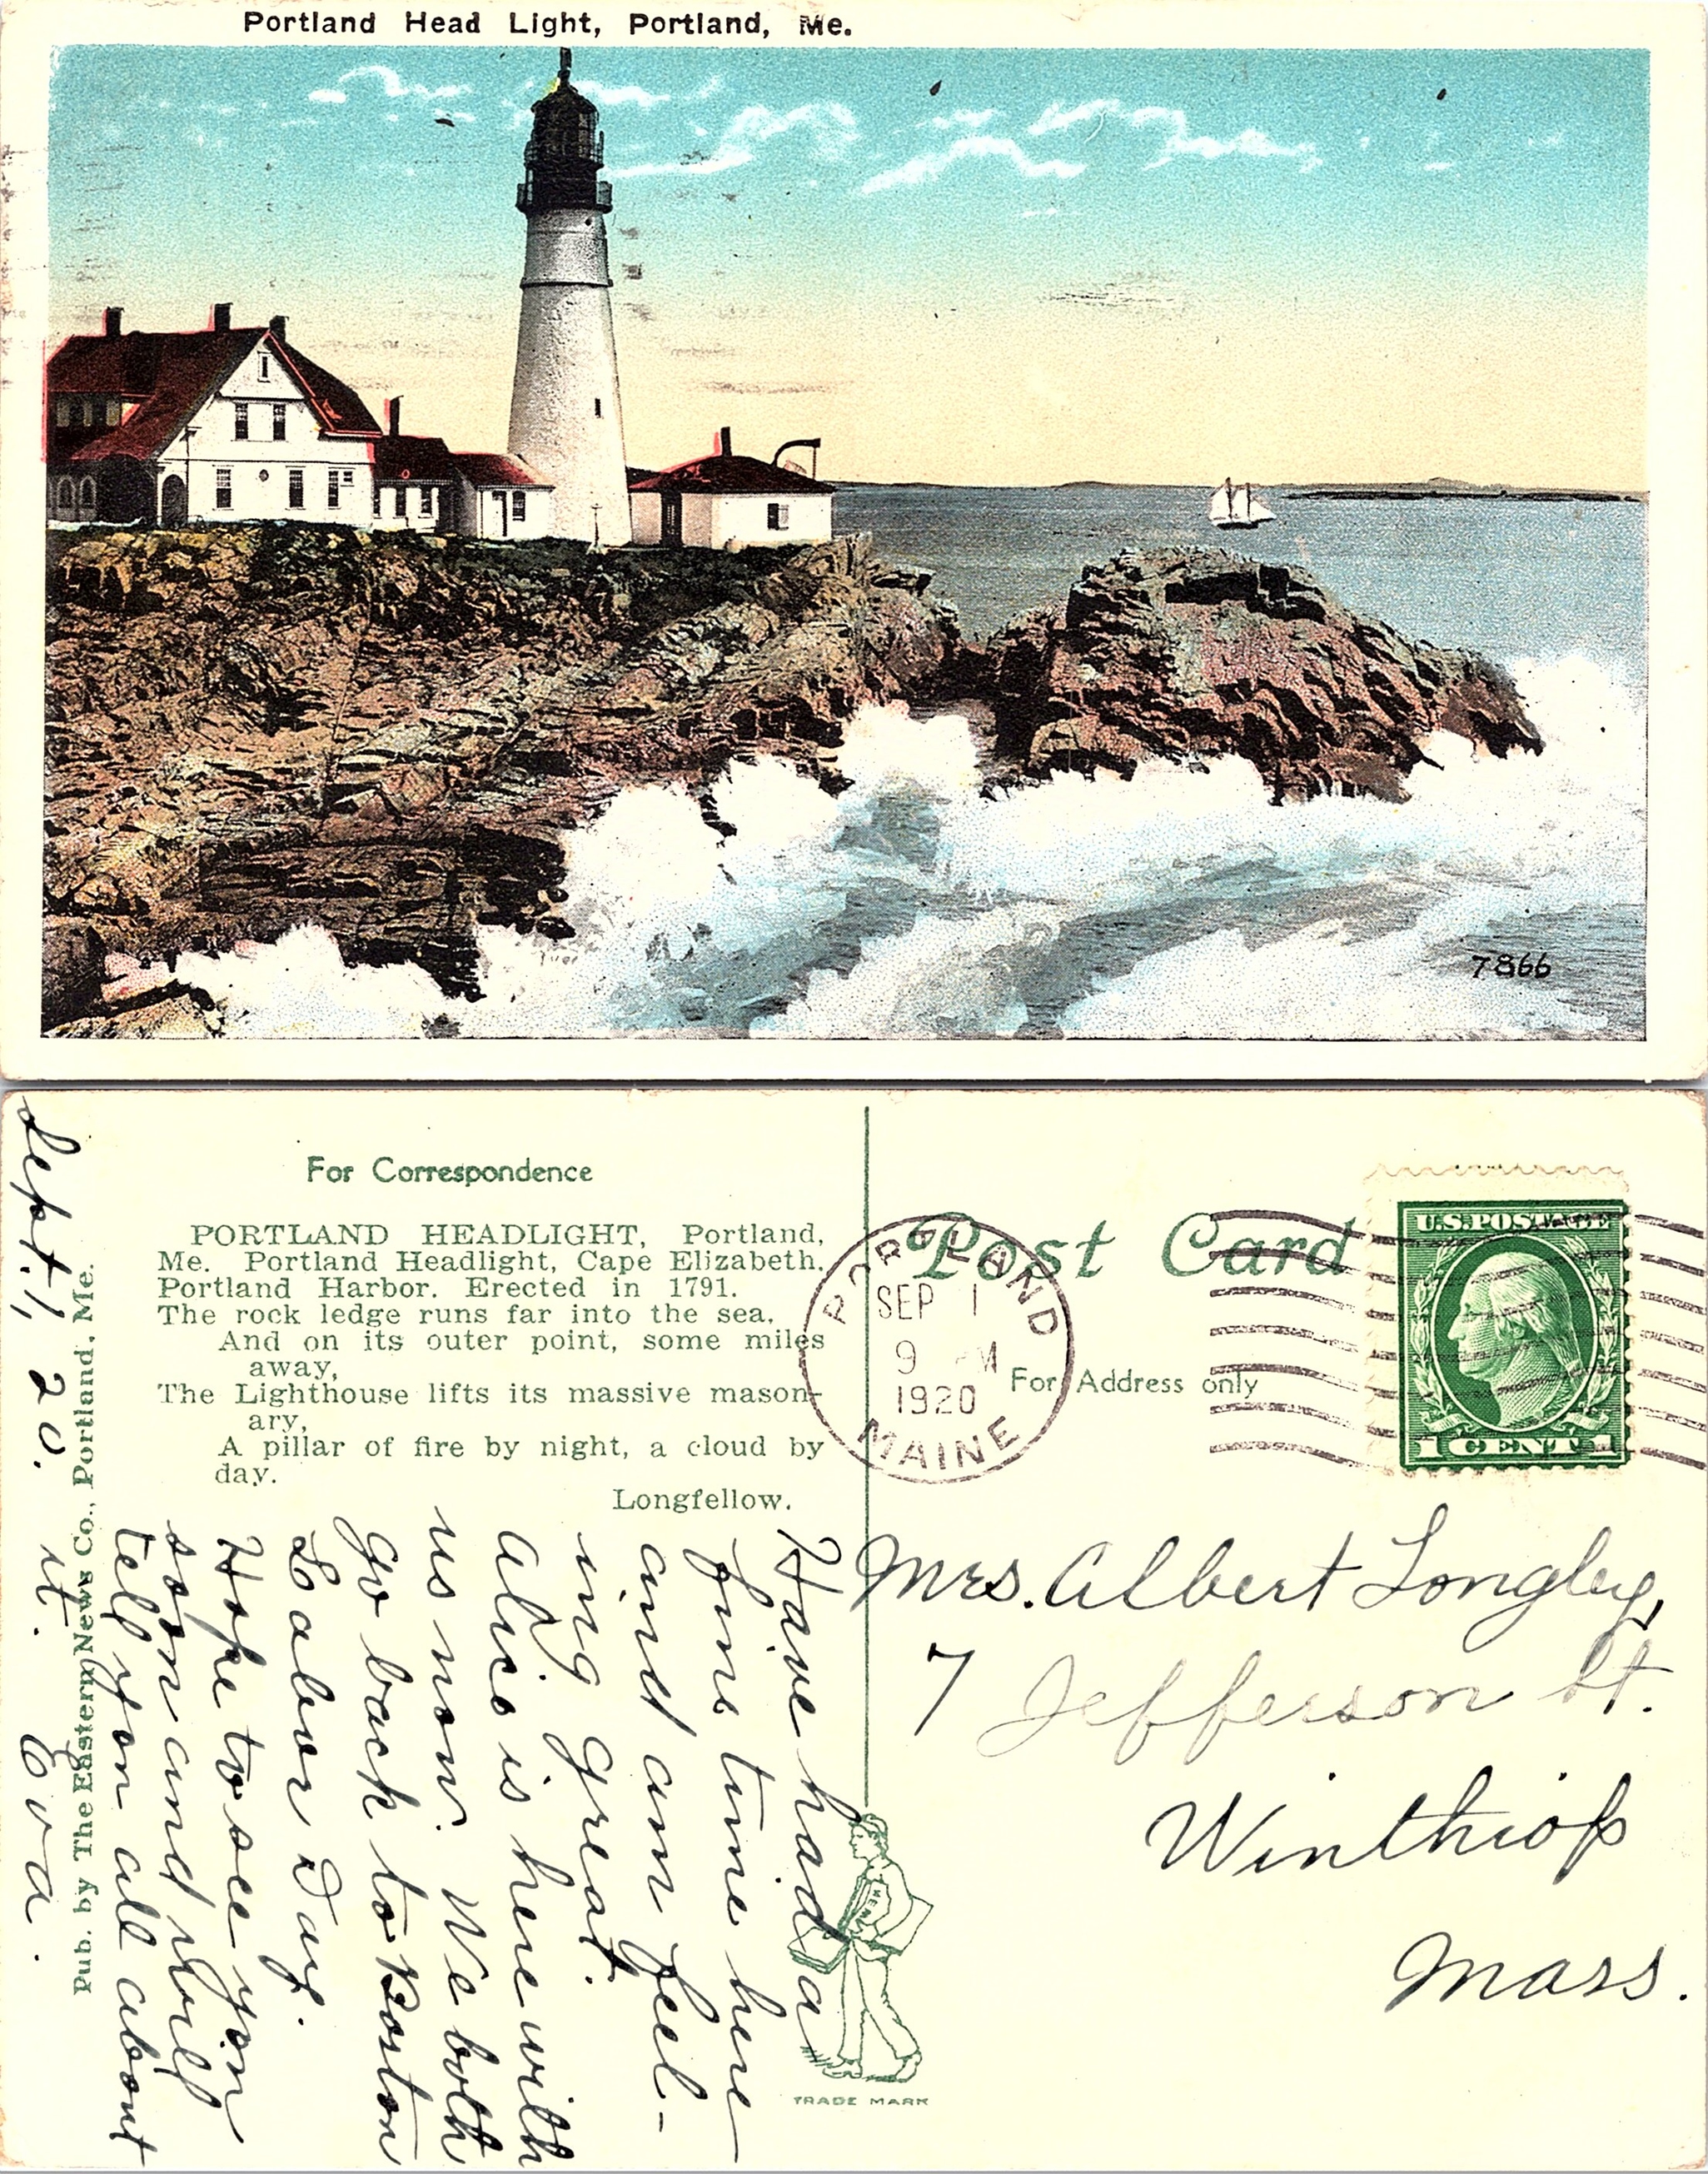 Portland Head Light, Portland, Me.
7866
For Correspondence
PORTLAND HEADLIGHT, Portland,
Me. Portland Headlight, Cape Elizabeth.
Portland Harbor. Erected in 1791.
The rock ledge runs far into the sea,
And on its outer point, some miles
away,
The Lighthouse lifts its massive mason-
ary,
A pillar of fire by night, a cloud by
day.
Longfellow.
Pub. by The Eastern News Co., Portland, Me.
Sept. 1, 20.
Have had a
fine time here
and am feel-
ing great.
Alice is here with
us now. We both
go back to Boston
Labor Day.
Hope to see you
soon and will
tell you all about
it. Eva.
Post Card
For Address only
PORTLAND
SEP 1
9 M
1920
MAINE
U.S. POSTAGE
1 CENT 1
Mrs. Albert Longley,
7 Jefferson St.
Winthrop
Mass.
NEWS
TRADE MARK